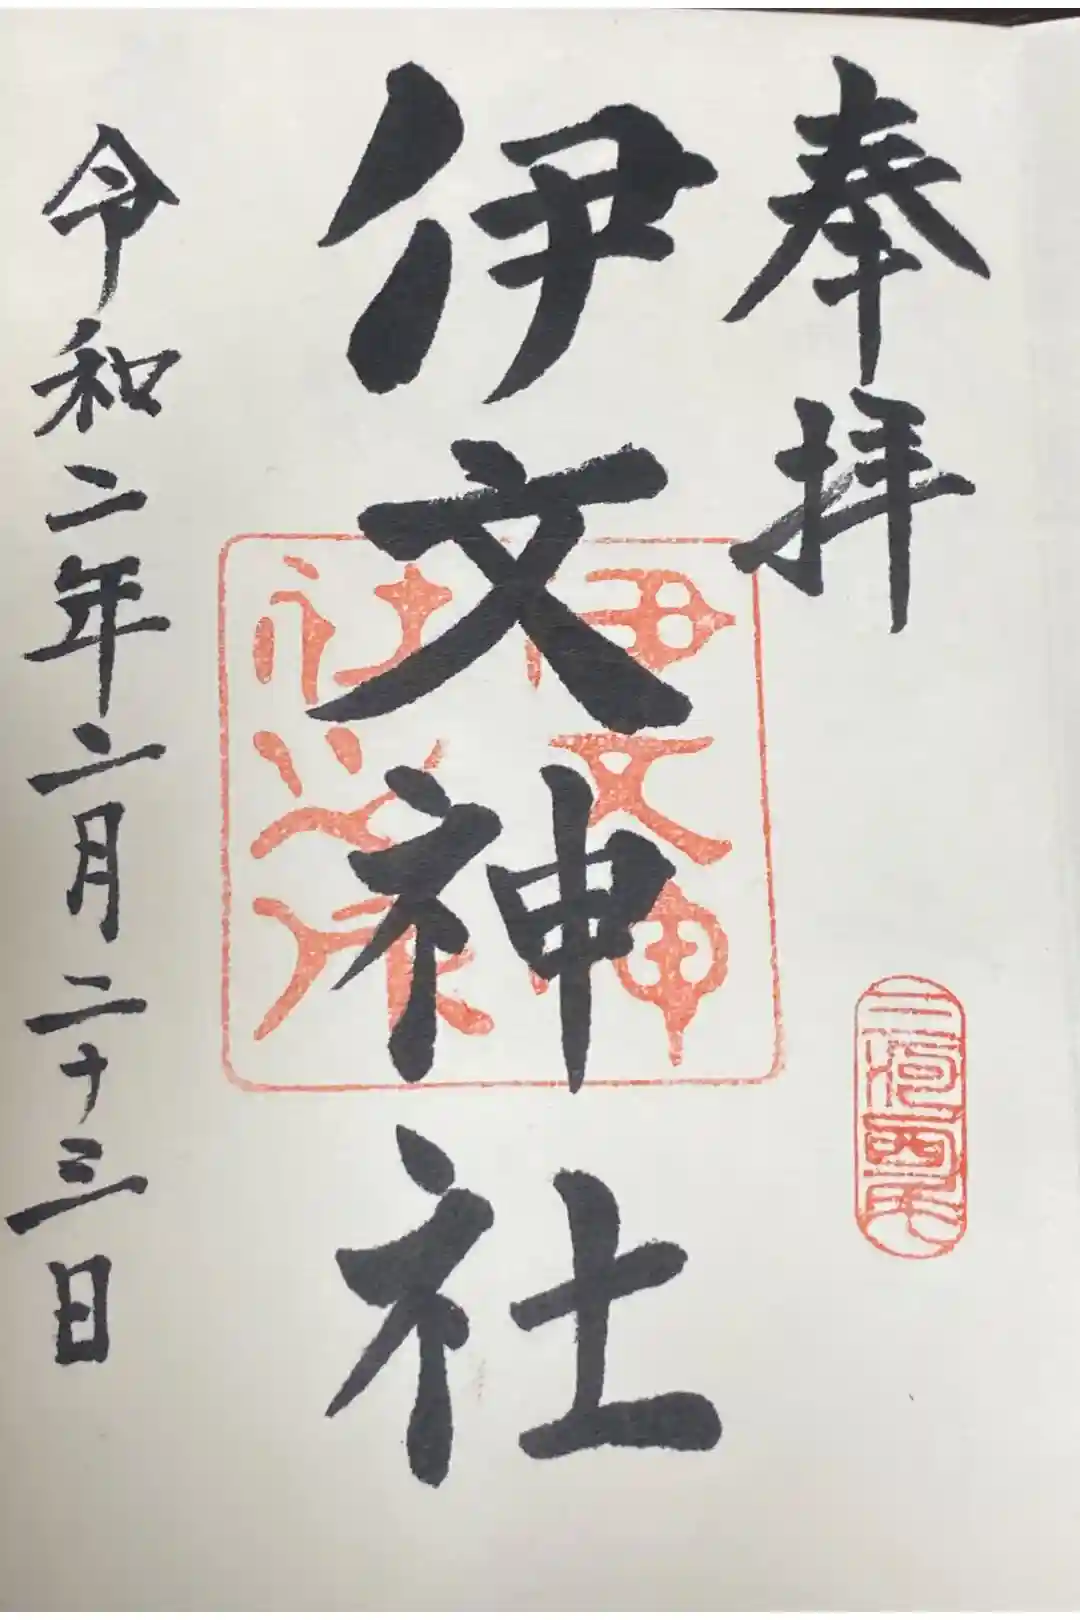 奉拝
三河西尾
伊文神社
伊文神社
令和二年二月二十三日